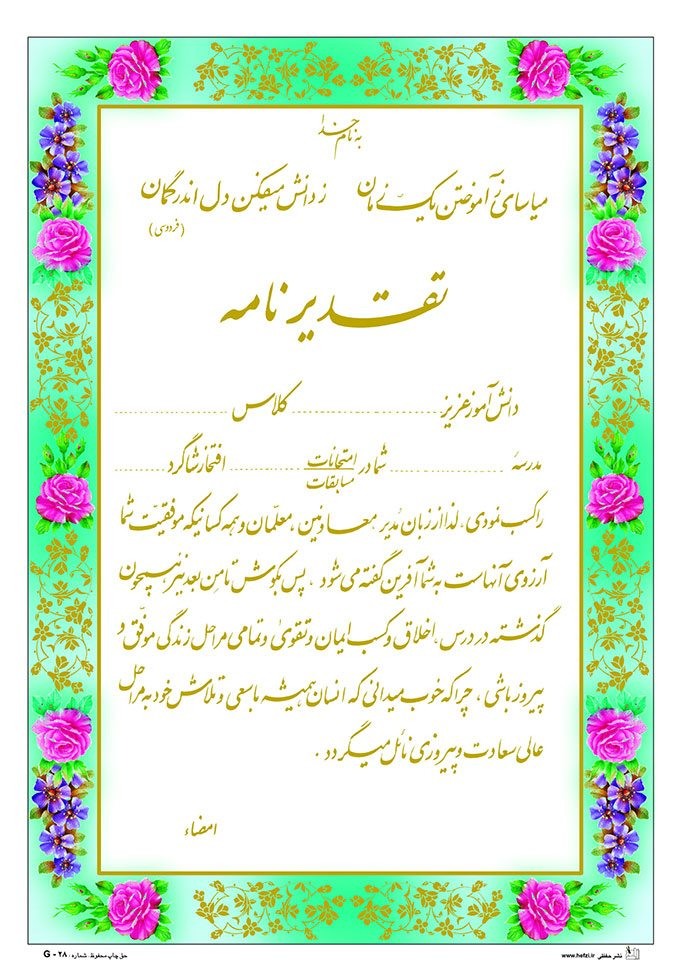 به نام خدا
میاسای ز آموختن یک زمان ز دانش میفکن دل اندر گمان
(فردوسی)
تقدیرنامه
دانش آموز عزیز ........................ کلاس ........................
مدرسه ........................ شما در امتحانات ........................ افتخار شاگرد ............
مسابقات
را کسب نمودی. لذا از زبان مُدیر معاونین، معلّمان و همه کسانیکه موفقیّت شما
آرزوی آنهاست به شما آفرین گفته می شود ، پس بکوش تا مِن بعد نیز همچون
گذشته در درس، اخلاق و کسب ایمان و تقویٰ و تمامی مراحل زندگی موفّق و
پیروز باشی ، چرا که خوب میدانی که انسان همیشه با سعی و تلاش خود به مراحل
عالی سعادت و پیروزی نائل میگردد .
امضاء
حق چاپ محفوظ. شماره: G - ۲۸
www.hefzi.ir نشر حفظی